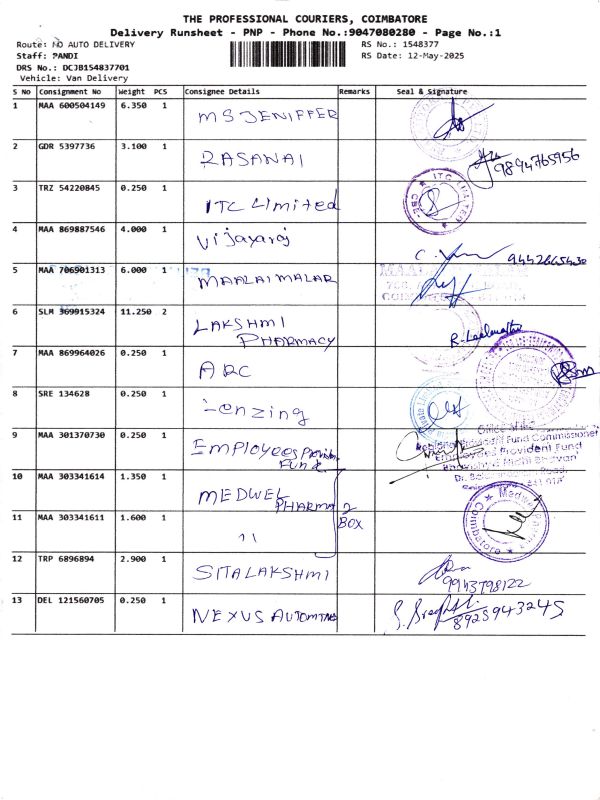 THE PROFESSIONAL COURIERS, COIMBATORE
Delivery Runsheet - PNP - Phone No.:9047080280 - Page No.:1
Route: NO AUTO DELIVERY
RS No.: 1548377
Staff: PANDI
RS Date: 12-May-2025
DRS No.: DCJB154837701
Vehicle: Van Delivery
S No Consignment No Weight PCS Consignee Details Remarks Seal & Signature
1 MAA 600504149 6.350 1 MS JENIFFER
2 GDR 5397736 3.100 1 RASANAI 9894765956
3 TRZ 54220845 0.250 1 ITC Limited ITC LIMITED CBE
4 MAA 869887546 4.000 1 Vijayaraj 9442665430
5 MAA 706901313 6.000 1 MAALAIMALAR
6 SLM 369915324 11.250 2 LAKSHMI
PHARMACY
7 MAA 869964026 0.250 1 ARC
8 SRE 134628 0.250 1 Lenzing
9 MAA 301370730 0.250 1 EMPLOYEES Provident
FUND
Office of the
Regional Provident Fund Commissioner
Employees Provident Fund
10 MAA 303341614 1.350 1 MEDWEL
PHARMA 2
BOX
11 MAA 303341611 1.600 1 "
Coimbatore
12 TRP 6896894 2.900 1 SITALAKSHMI 9943798122
13 DEL 121560705 0.250 1 NEXUS 8925943245